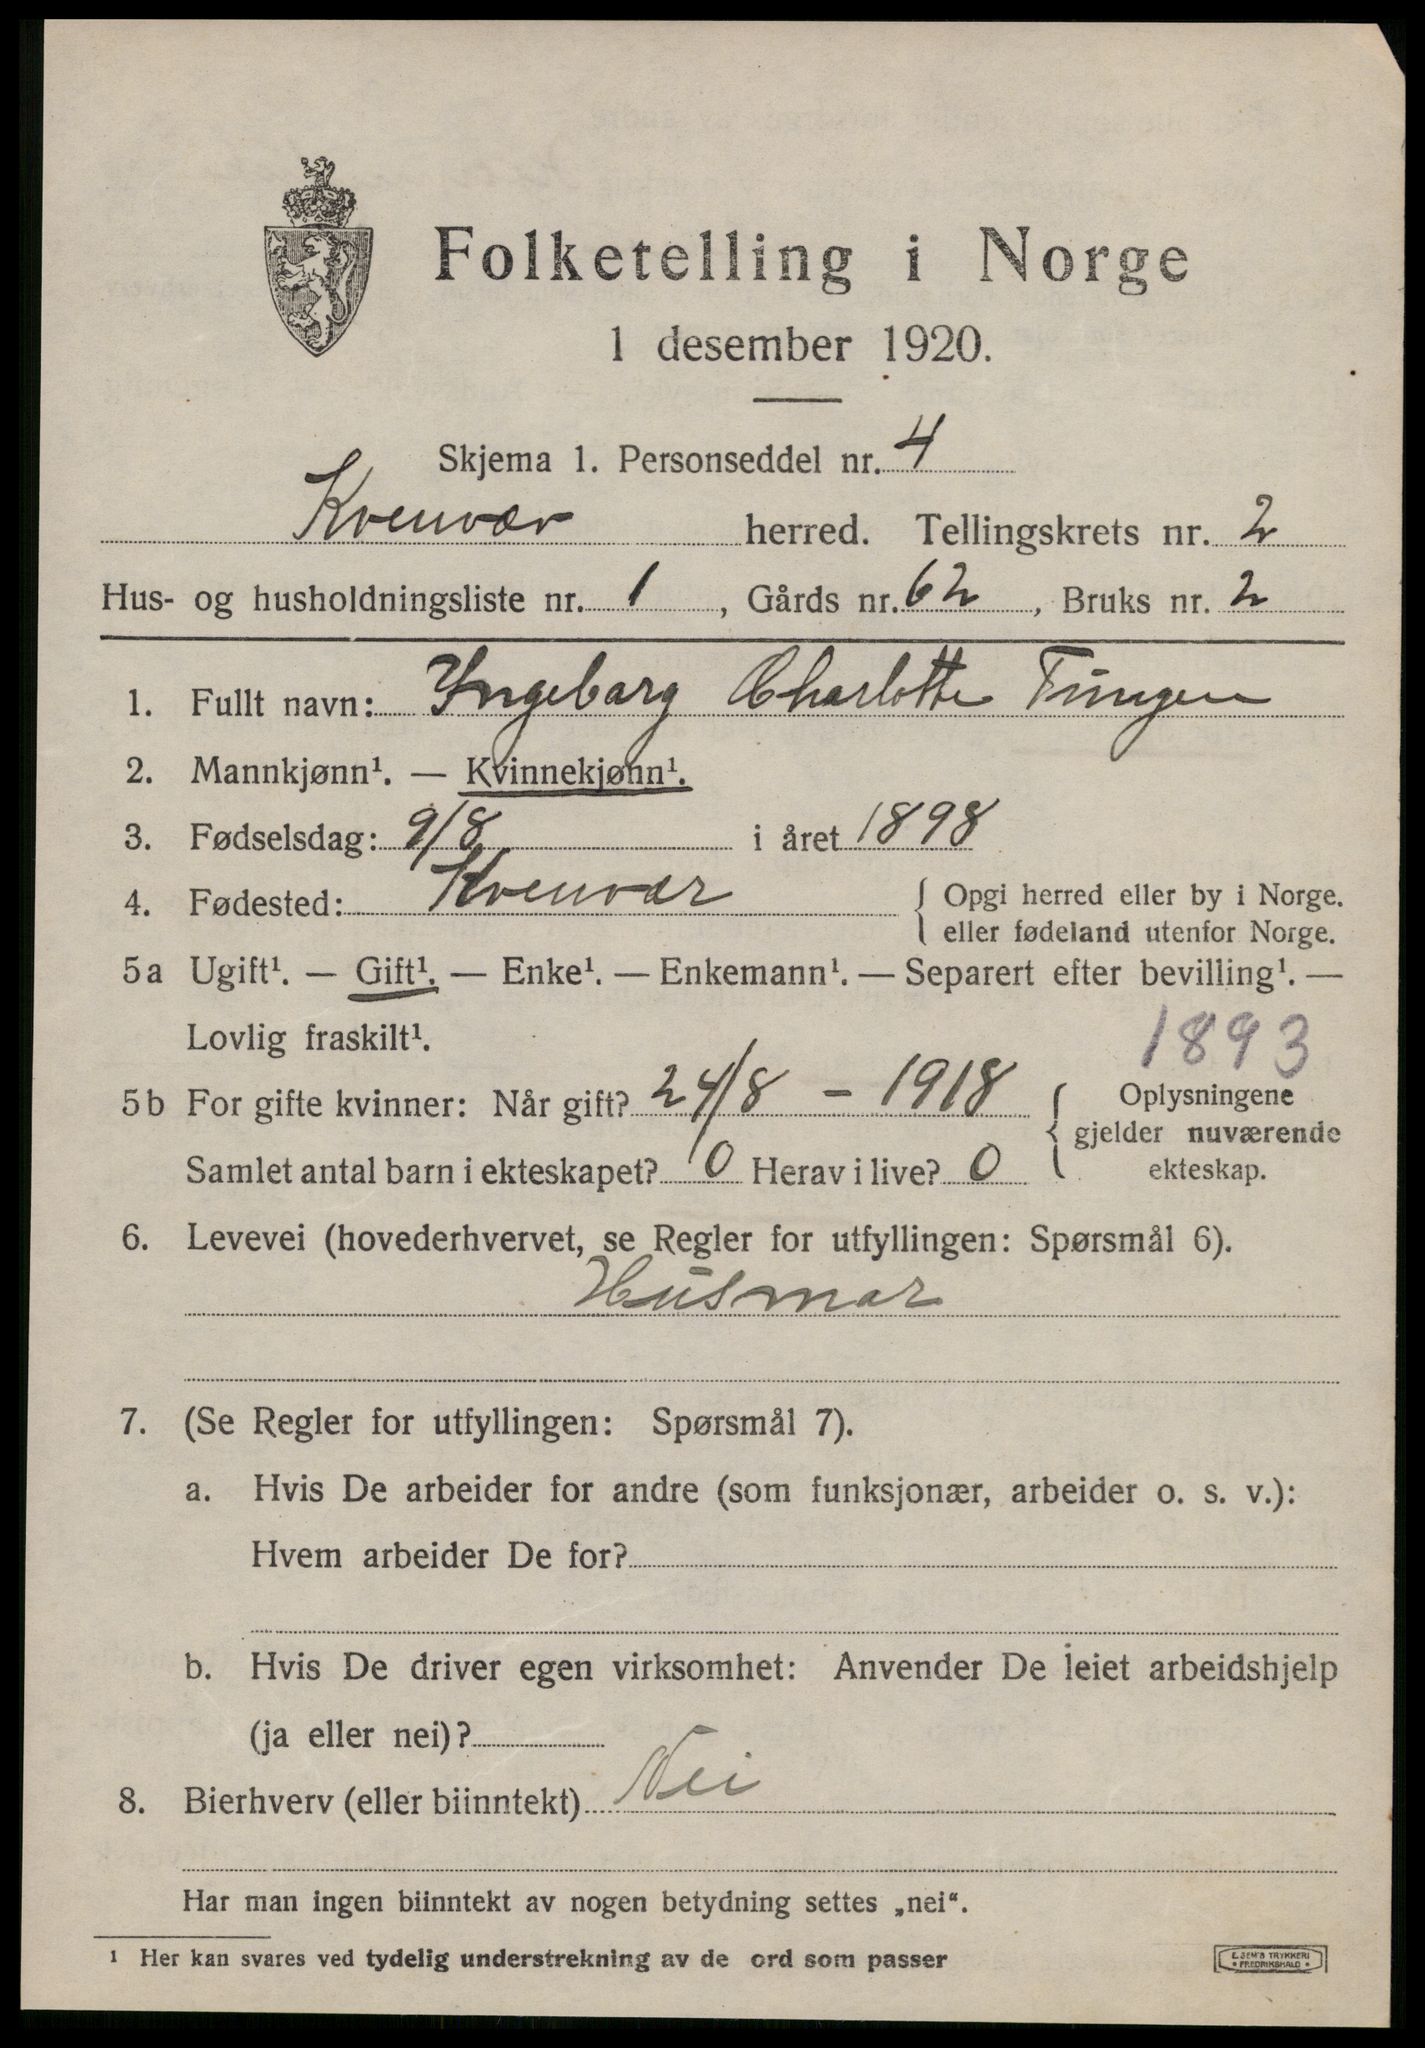 Folketelling i Norge
1 desember 1920.
Skjema 1. Personseddel nr. 4
Kvenvær herred. Tellingskrets nr. 2
Hus- og husholdningsliste nr. 1, Gårds nr. 62, Bruks nr. 2
1. Fullt navn: Yngebarg Charlotte Tungen
2. Mannkjønn¹. — Kvinnekjønn¹.
3. Fødselsdag: 9/8 i året 1898
4. Fødested: Kvenvær { Opgi herred eller by i Norge.
eller fødeland utenfor Norge.
5a Ugift¹. — Gift¹. — Enke¹. — Enkemann¹. — Separert efter bevilling¹. —
Lovlig fraskilt¹. 1893
5b For gifte kvinner: Når gift? 24/8 – 1918 { Oplysningene
gjelder nuværende
Samlet antal barn i ekteskapet? 0 Herav i live? 0 ekteskap.
6. Levevei (hovederhvervet, se Regler for utfyllingen: Spørsmål 6).
Husmor
7. (Se Regler for utfyllingen: Spørsmål 7).
a. Hvis De arbeider for andre (som funksjonær, arbeider o. s. v.):
Hvem arbeider De for?
b. Hvis De driver egen virksomhet: Anvender De leiet arbeidshjelp
(ja eller nei)?
8. Bierhverv (eller biinntekt) Nei
Har man ingen biinntekt av nogen betydning settes „nei“.
¹ Her kan svares ved tydelig understrekning av de ord som passer
E. SEM'S TRYKKERI
• FREDRIKSHALD •